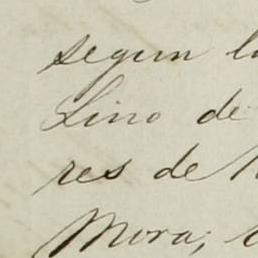 segun l
Lino de
res de
Mora;